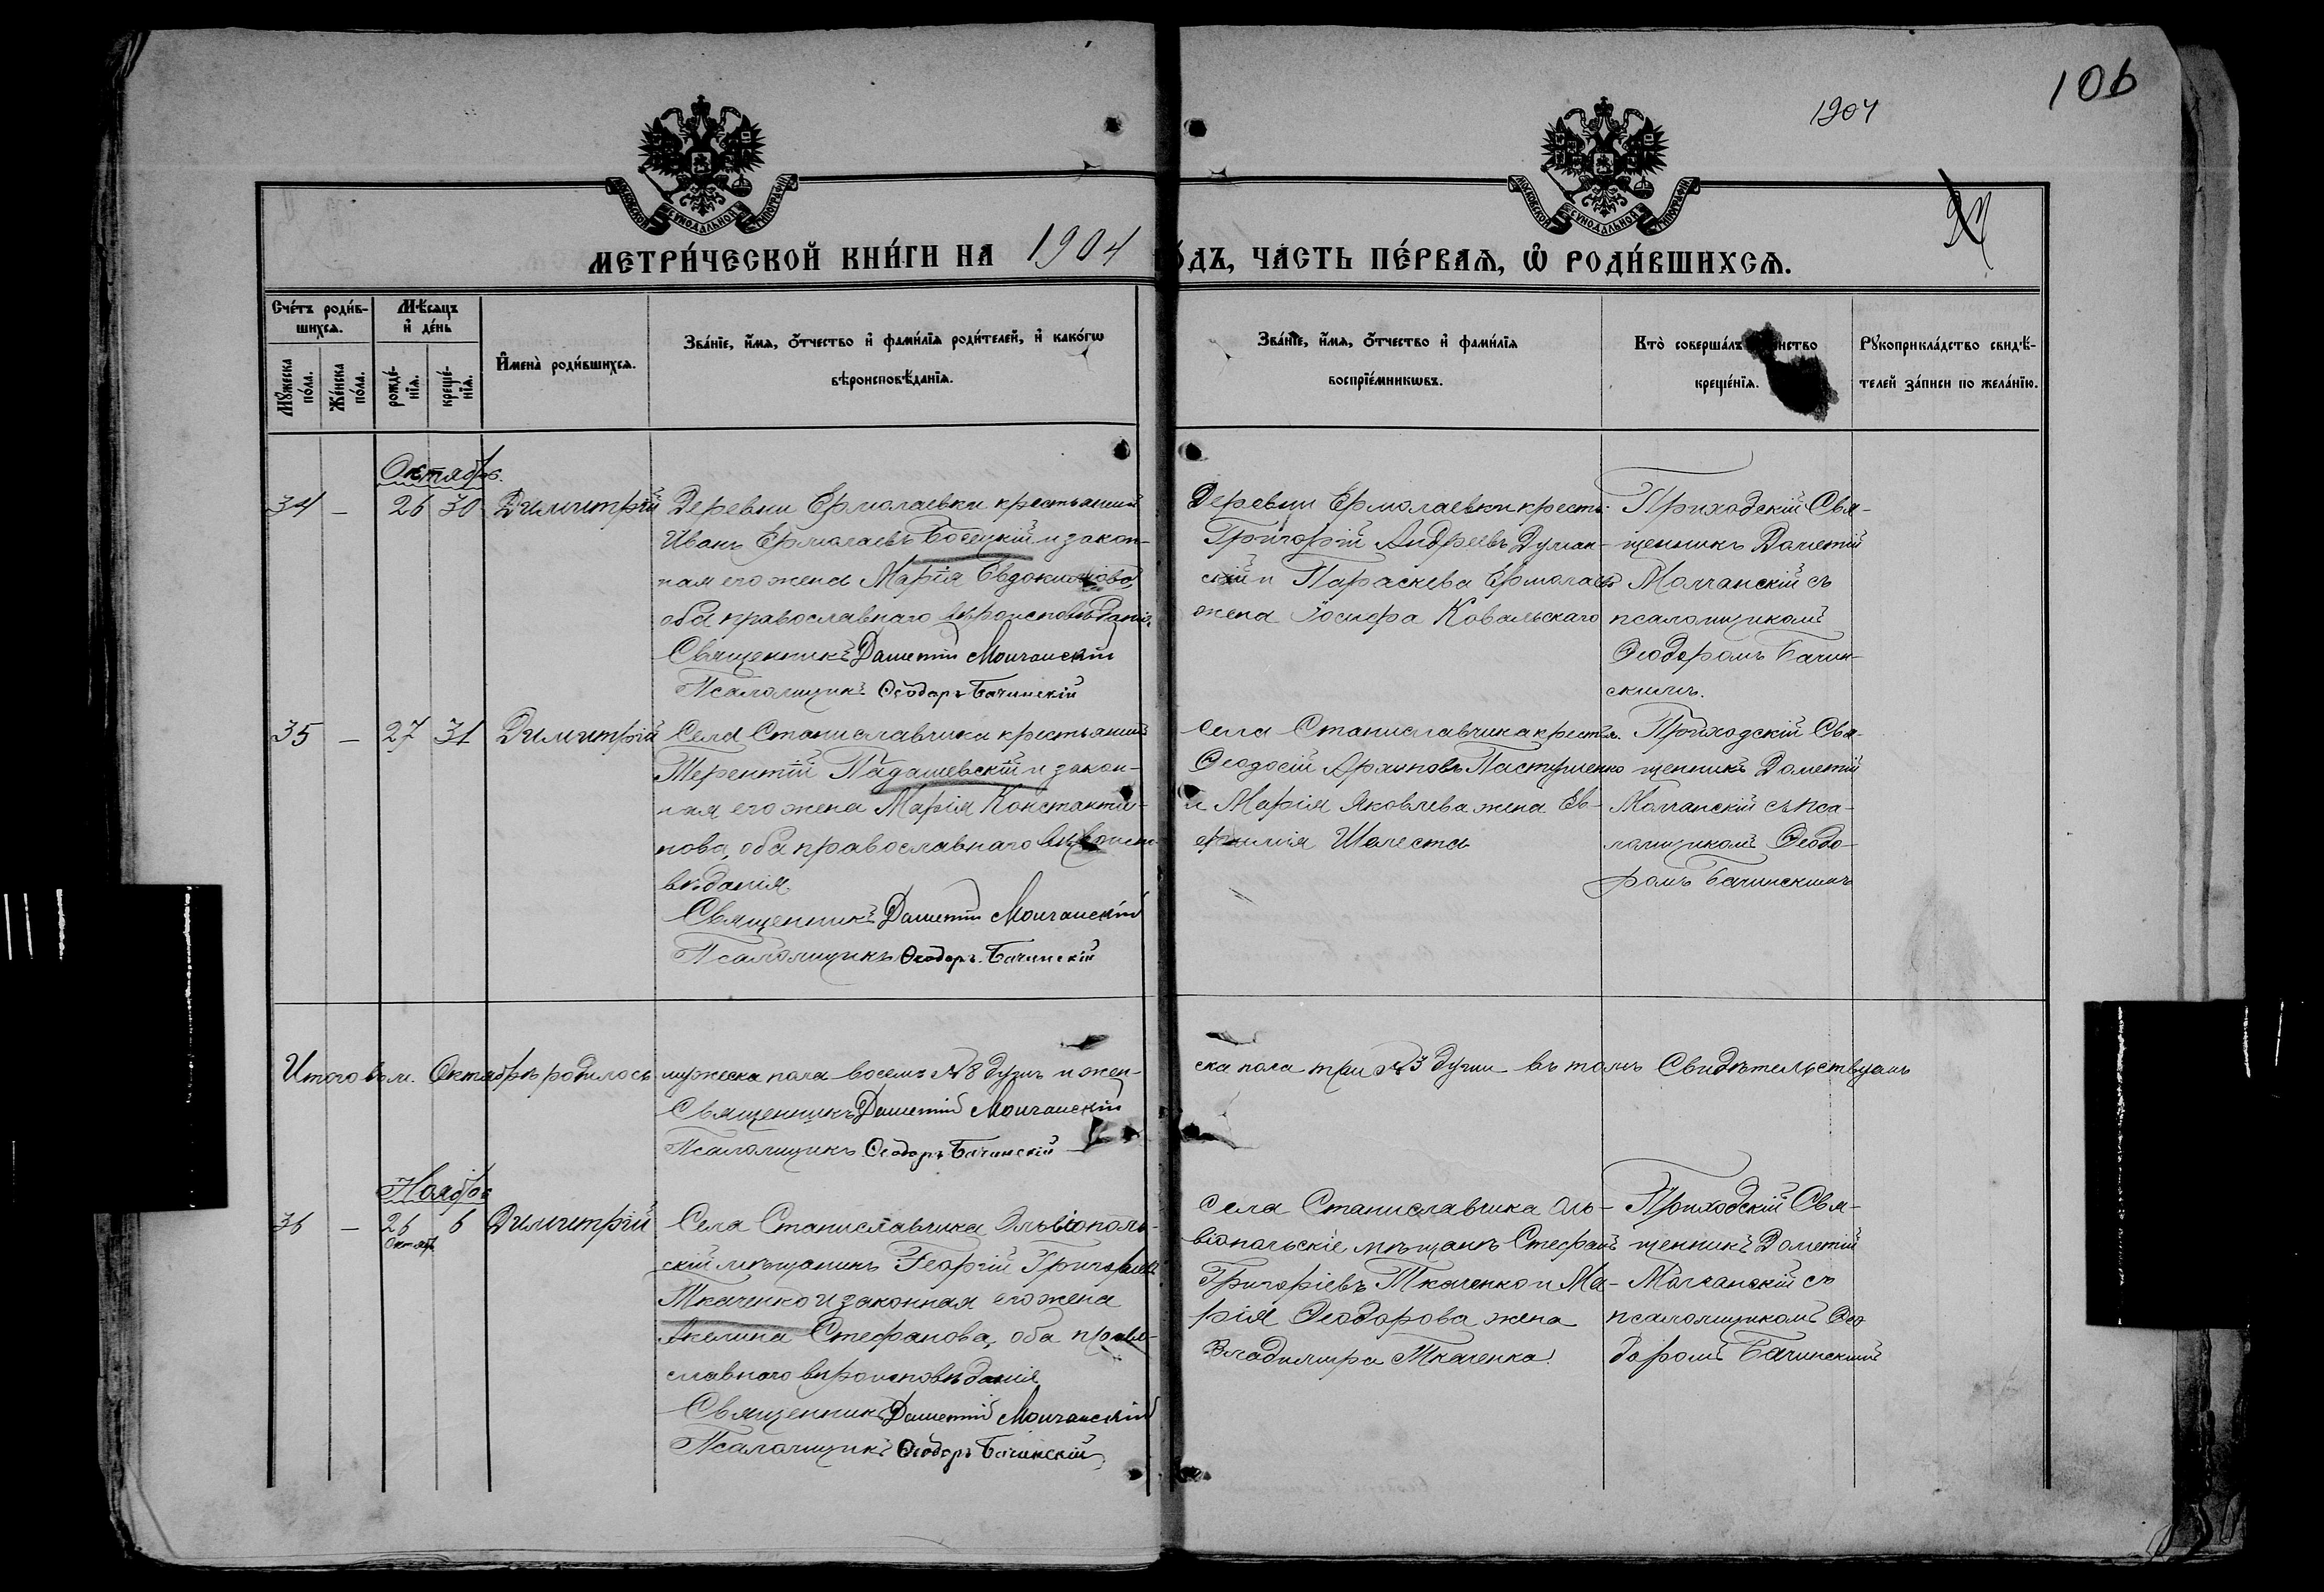 1904
106
МОСКОВСКОЙ СѴНОДАЛЬНОЙ ТИПОГРАФІИ
МОСКОВСКОЙ СѴНОДАЛЬНОЙ ТИПОГРАФІИ
МЕТРИ́ЧЕСКОЙ КНИ́ГИ НА 1904
О́ДЪ, ЧА́СТЬ ПЕ́РВАѦ, Ѽ РОДИ́ВШИХСѦ.
Сче́тъ роди́в-
шихсѧ.
Мꙋ́жеска
по́ла.
Же́нска
по́ла.
Мѣ́сѧцъ
и҆ де́нь
рожде́-
нїѧ.
креще́-
нїѧ.
И҆мена̀ роди́вшихсѧ.
Зва́нїе, и҆́мѧ, ѻ҆́тчество и҆ фами́лїѧ роди́телей, и҆ како́гѡ
вѣроисповѣ́данїѧ.
Зва́нїе, и҆́мѧ, ѻ҆́тчество и҆ фами́лїѧ
воспрїе́мникѡвъ.
Кто̀ соверша́лъ
креще́нїѧ.
Рꙋкоприкла́дство свидѣ́-
телей за́писи по жела́нїю.
Октябрь.
34 — 26 30 Димитрій
Деревни Ермолаевки крестьянинъ
Иванъ Ермолаевъ Босецкій и закон-
ная его жена Марія Евдокимова,
оба православнаго вѣроисповѣданія.
Священникъ Дометій Молчанскій
Псаломщикъ Ѳеодоръ Бачинскій
Деревни Ермолаевки крестъ.
Григорій Андреевъ Думан-
скій и Параскева Ермолаев
жена Іосифа Ковальскаго
Приходскій Свя-
щенникъ Дометій
Молчанскій съ
псаломщикомъ
Ѳеодоромъ Бачин-
скимъ.
35 — 27 31 Димитрій
Села Станиславчика крестьянинъ
Терентій Падашевскій и закон-
ная его жена Марія Константи-
нова, оба православнаго вѣроиспо-
вѣданія.
Священникъ Дометій Молчанскій
Псаломщикъ Ѳеодоръ Бачинскій
Села Станиславчика крестья.
Ѳеодосій Архиповъ Пастушенко
и Марія Яковлева жена Ев-
фимія Шелеста
Приходскій Свя-
щенникъ Дометій
Молчанскій съ пса-
ломщикомъ Ѳеодо-
ромъ Бачинскимъ
Итого въ м. Октябрѣ родилось мужеска пола восемь №8 душъ и жен-
ска пола три №3 души въ томъ Свидѣтельствуемъ
Священникъ Дометій Молчанскій
Псаломщикъ Ѳеодоръ Бачинскій
Ноябрь
36 — 26 6 Димитрій
Октяб.
Села Станиславчика Ольвіополь-
скій мѣщанинъ Георгій Григорьевъ
Ткаченко и законная его жена
Акелина Стефанова, оба право-
славнаго вѣроисповѣданія
Священникъ Дометій Молчанскій
Псаломщикъ Ѳеодоръ Бачинскій
Села Станиславчика Оль-
віопольскіе мѣщанъ Стефанъ
Григоріевъ Ткаченко и Ма-
рія Ѳеодорова жена
Владимира Ткаченка.
Приходскій Свя-
щенникъ Дометій
Молчанскій съ
псаломщикомъ Ѳео
доромъ Бачинскимъ